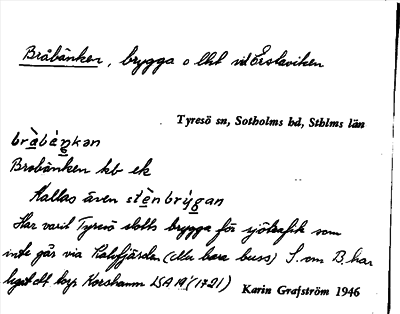 Bråbänken, brygga o lht vid Erstaviken
Tyresö sn, Sotholms hd, Sthlms län
bràbáŋkan
Brobänken kb ek
Kallas även stènbrýgan
Har varit Tyresö slotts brygga för sjötrafik som
inte går via Kalvfjärden (eller bara buss) S. om B. har
legat ett torp Korshamn LSA 19 (1721)
Karin Grafström 1946